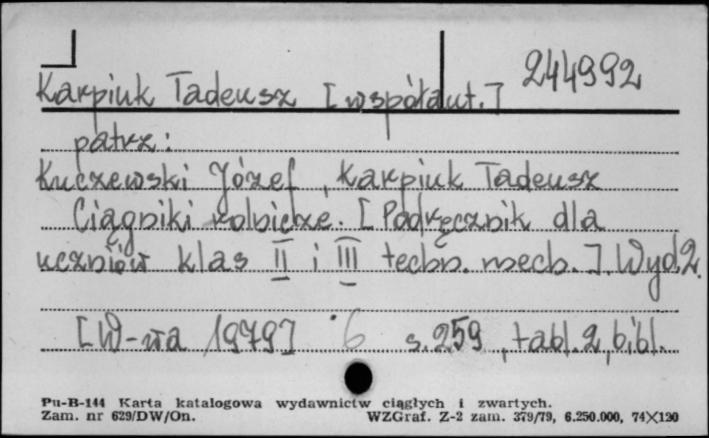 244992
Karpiuk Tadeusz [współaut.]
patrz:
Kuczewski Józef, Karpiuk Tadeusz
Ciągniki rolnicze. [Podręcznik dla
uczniów klas II i III techn. mech.]. Wyd. 2.
[W-wa 1979] 6 s. 259, tabl. 2, bibl.
Pu-B-144 Karta katalogowa wydawnictw ciągłych i zwartych.
Zam. nr 629/DW/On. WZGraf. Z-2 zam. 379/79, 6.250.000, 74X120